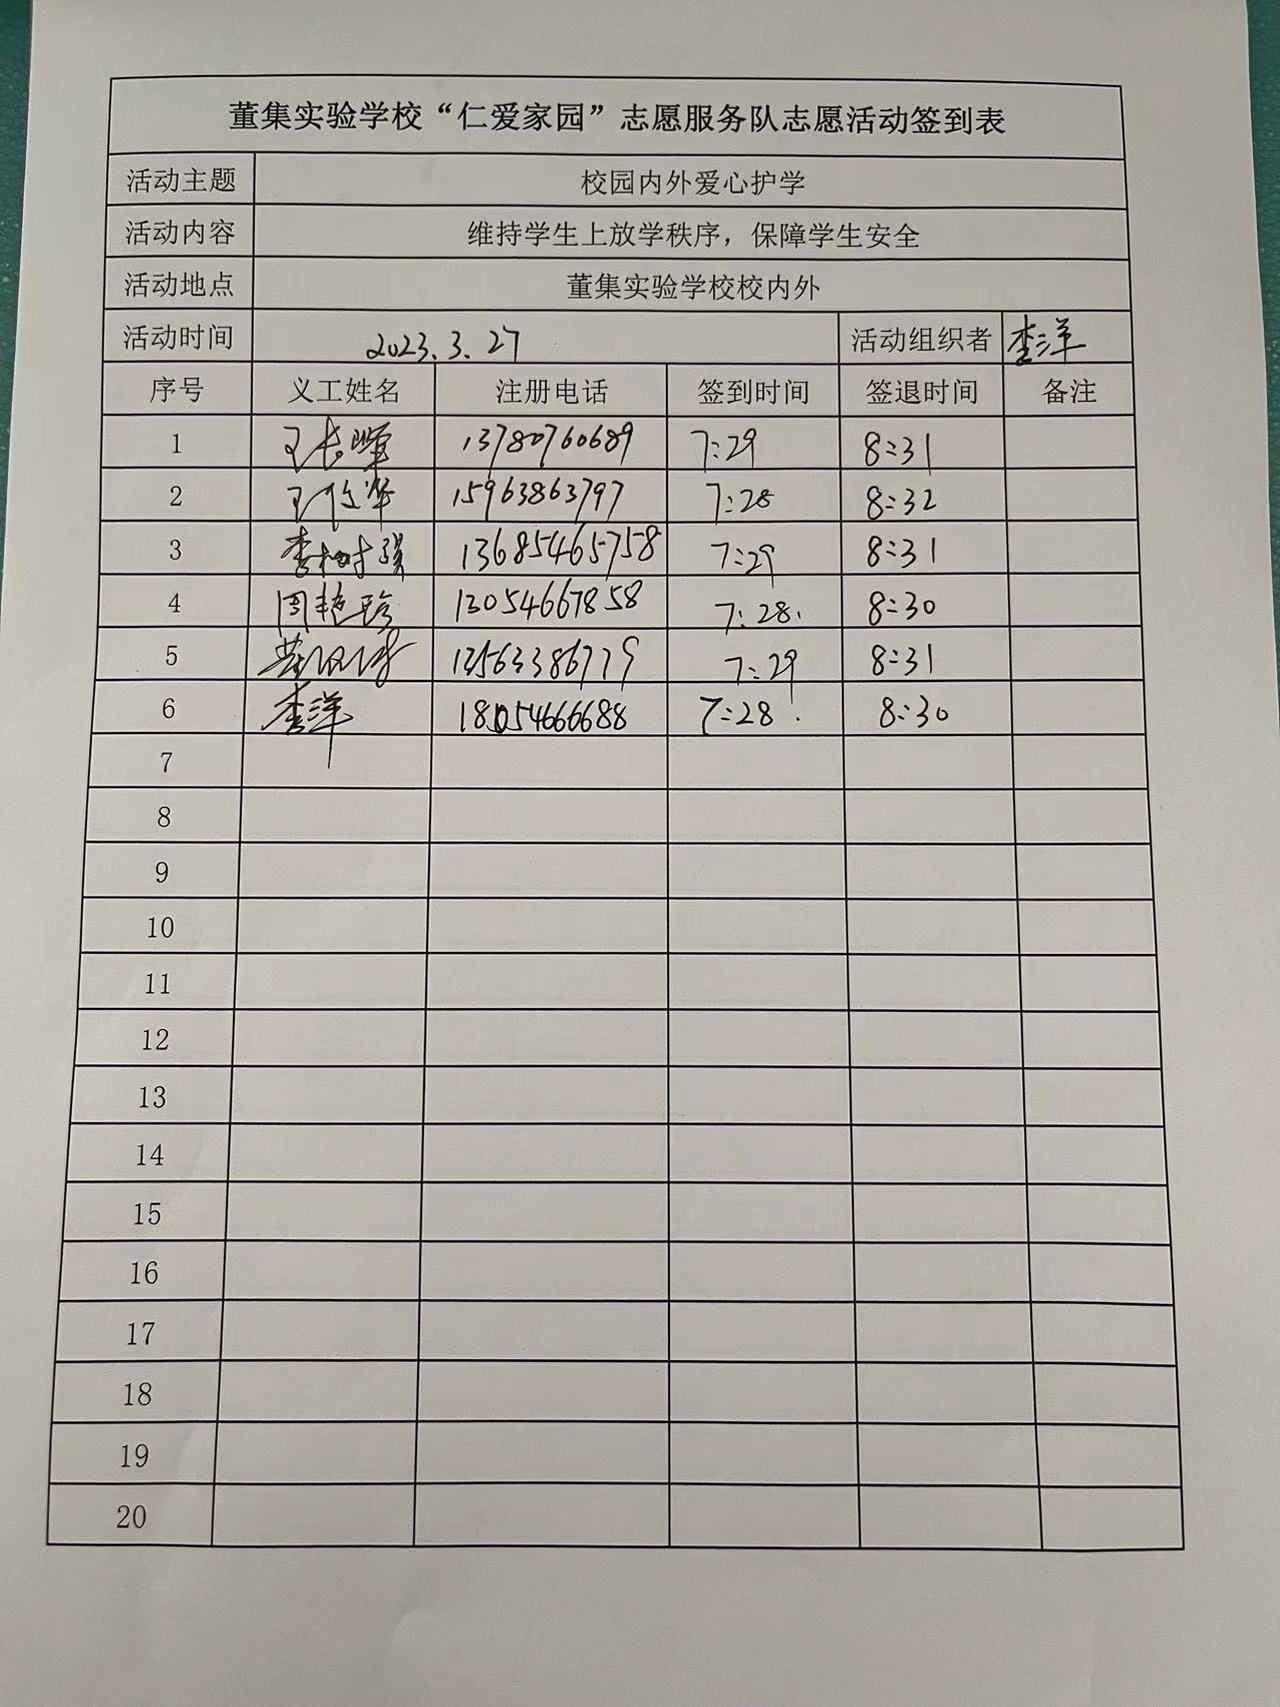 董集实验学校“仁爱家园”志愿服务队志愿活动签到表
活动主题 校园内外爱心护学
活动内容 维持学生上放学秩序，保障学生安全
活动地点 董集实验学校校内外
活动时间 2023.3.27 活动组织者 李洋
序号 义工姓名 注册电话 签到时间 签退时间 备注
1 王长 13780760689 7:29 8:31
2 王 15963863797 7:28 8:32
3 李树强 13685465758 7:29 8:31
4 周艳玲 13054667858 7:28. 8:30
5 13563386779 7:29 8:31
6 李洋 18054666688 7:28. 8:30
7
8
9
10
11
12
13
14
15
16
17
18
19
20